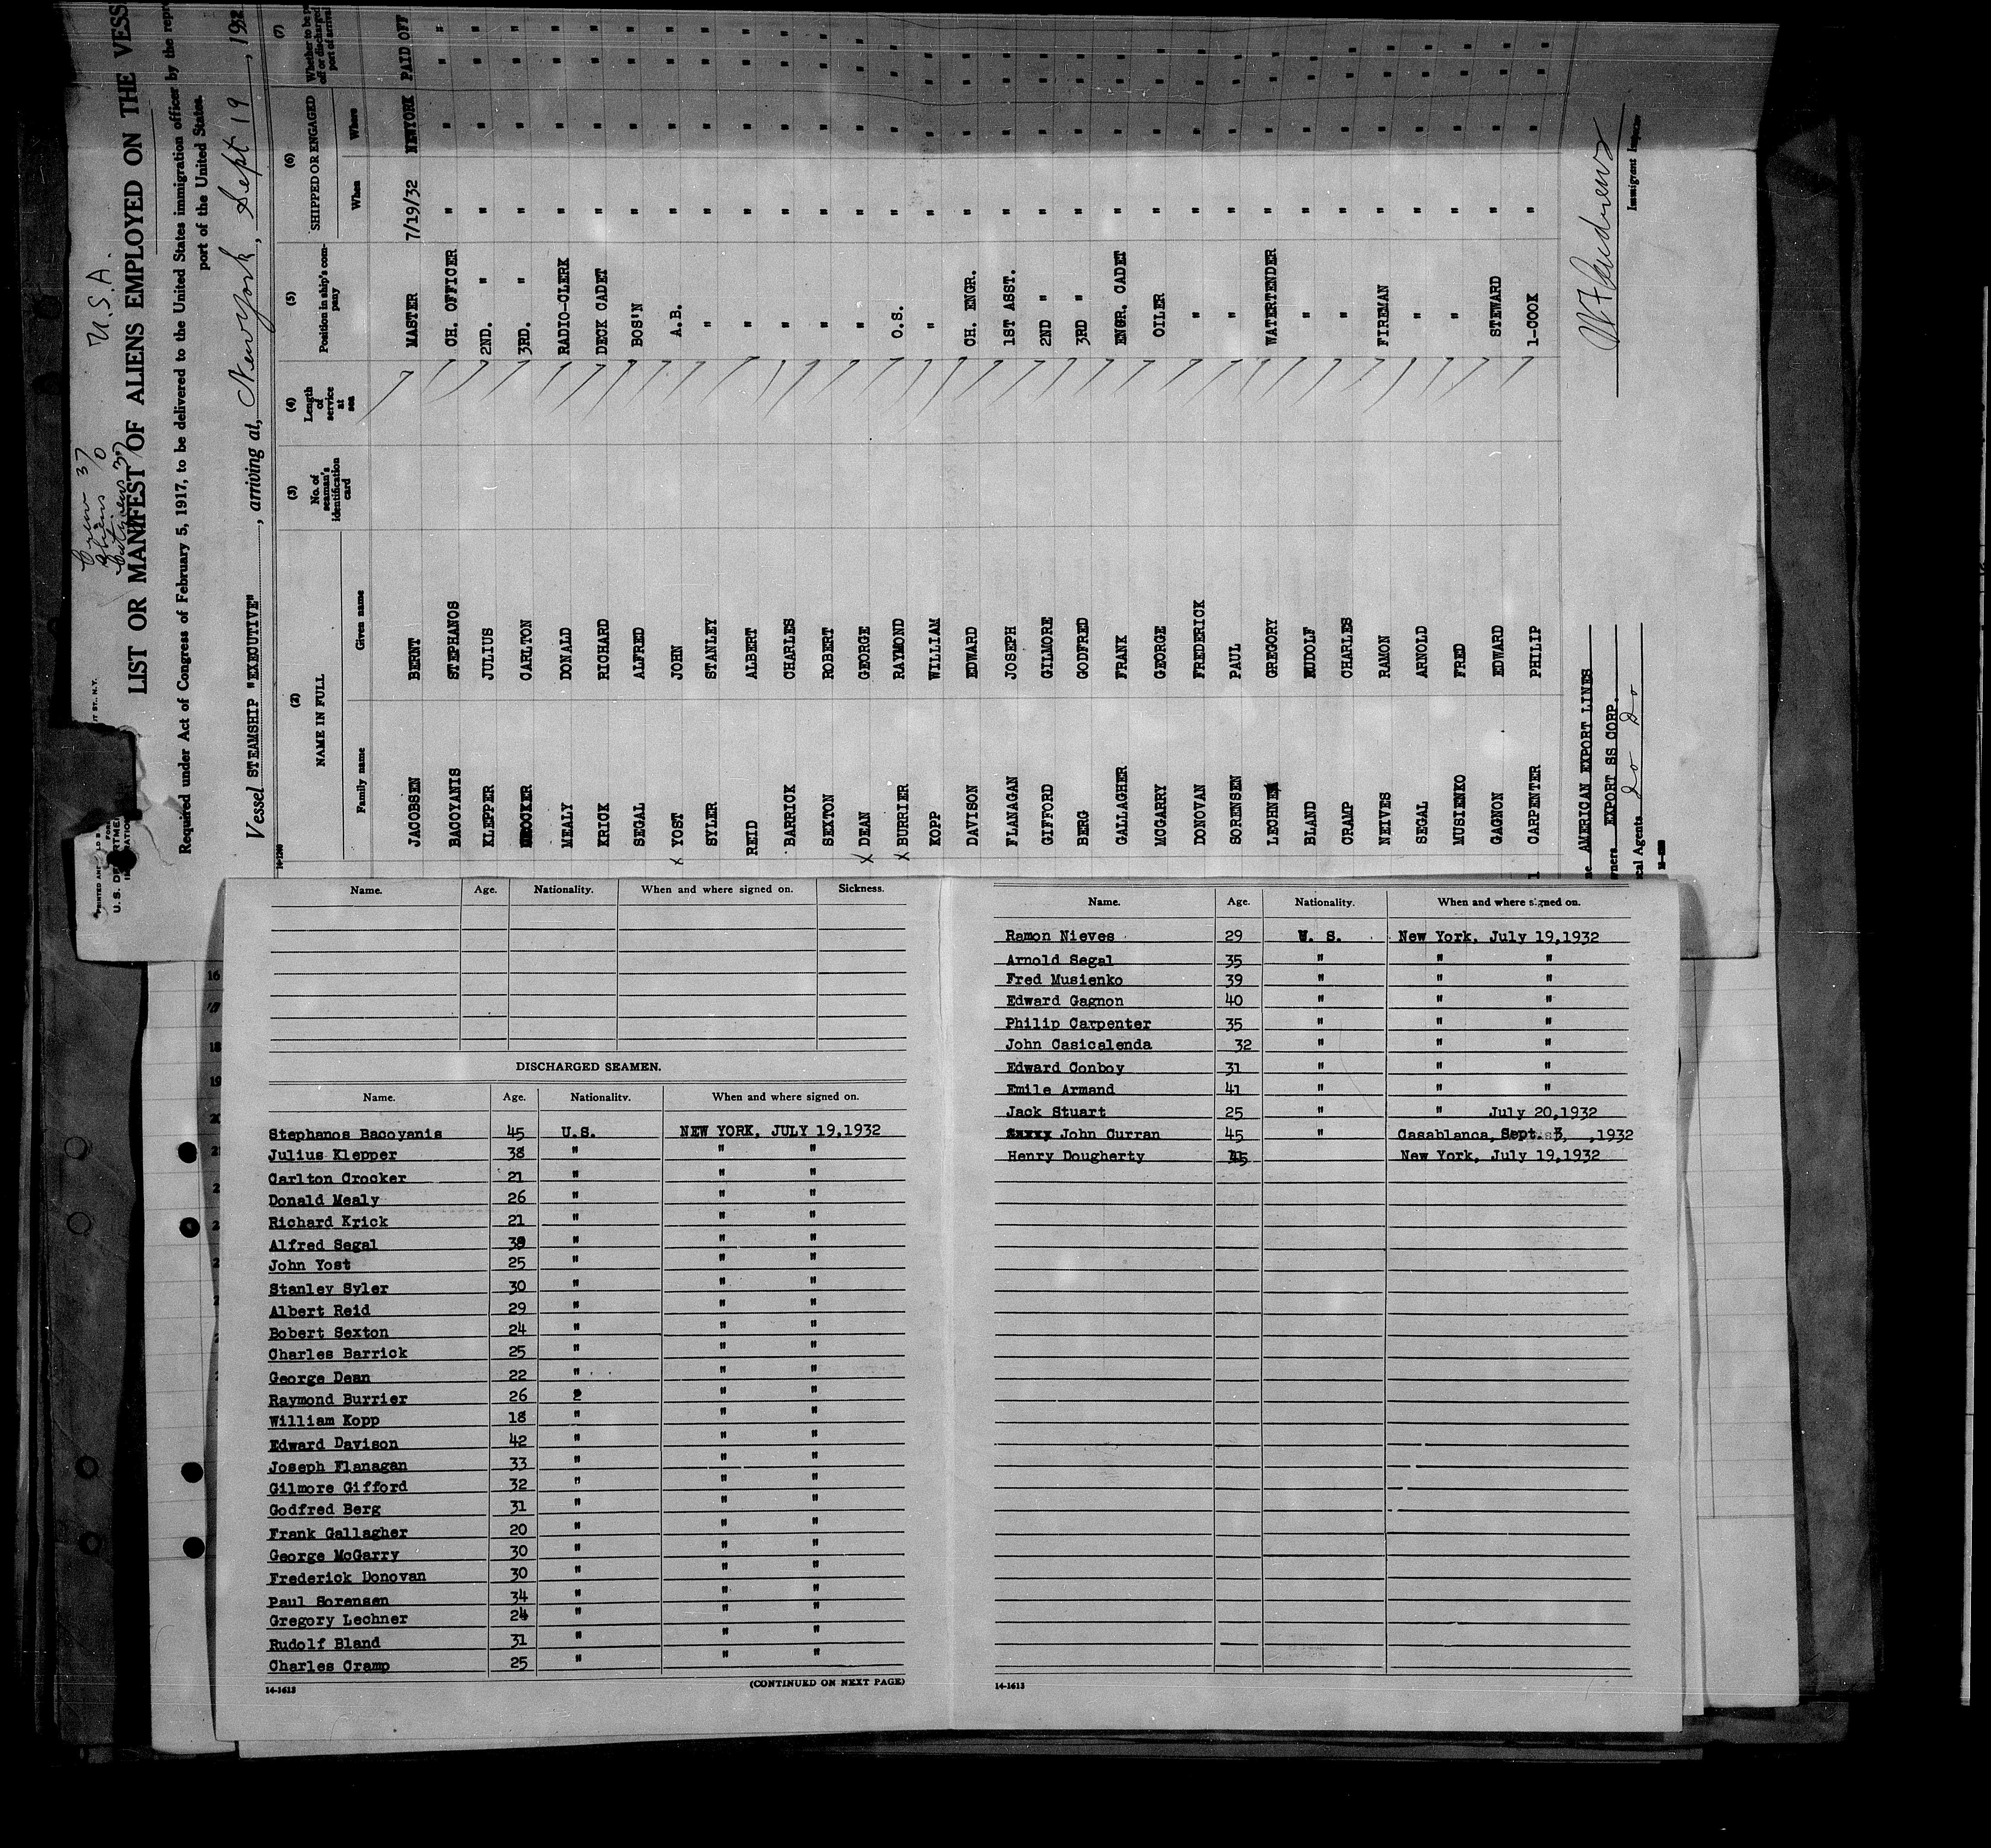 U.S.A.
Crew 37
Aliens 0
Citizens 37
LIST OR MANIFEST OF ALIENS EMPLOYED ON THE VESS
Required under Act of Congress of February 5, 1917, to be delivered to the United States immigration officer by the repr
port of the United States.
Vessel STEAMSHIP "EXECUTIVE", arriving at, New York, Sept 19, 1932
(2) (3) (4) (5) (6) (7)
NAME IN FULL No. of seaman's identification card Length of service at sea Position in ship's company SHIPPED OR ENGAGED Whether to be paid off or discharged port of arrival
Family name Given name When Where
JACOBSEN BERNT MASTER 7/19/32 NEWYORK PAID OFF
BACOYANIS STEPHANOS CH. OFFICER " " " "
KLEPPER JULIUS 2ND. " " " " "
CROCKER CARLTON 3RD. " " " " "
MEALY DONALD RADIO-CLERK " " " "
KRICK RICHARD DECK CADET " " " "
SEGAL ALFRED BOS'N " " " "
x YOST JOHN A.B. " " " "
SYLER STANLEY " " " " "
REID ALBERT " " " " "
BARRICK CHARLES " " " " "
SEXTON ROBERT " " " " "
x DEAN GEORGE " " " " "
x BURRIER RAYMOND O.S. " " " "
KOPP WILLIAM " " " " "
DAVISON EDWARD CH. ENGR. " " " "
FLANAGAN JOSEPH 1ST ASST. " " " "
GIFFORD GILMORE 2ND " " " " "
BERG GODFRED 3RD " " " " "
GALLAGHER FRANK ENGR. CADET " " " "
MCGARRY GEORGE OILER " " " "
DONOVAN FREDERICK " " " " "
SORENSEN PAUL " " " " "
LECHNER GREGORY WATERTENDER " " " "
BLAND RUDOLF " " " " "
CRAMP CHARLES " " " " "
NEIVES RAMON FIREMAN " " " "
SEGAL ARNOLD " " " " "
MUSIENKO FRED " " " " "
GAGNON EDWARD STEWARD " " " "
CARPENTER PHILIP 1-COOK " " " "
AMERICAN EXPORT LINES
EXPORT SS CORP.
cal Agents do do
Immigrant Inspector
Name. Age. Nationality. When and where signed on. Sickness.
DISCHARGED SEAMEN.
Name. Age. Nationality. When and where signed on.
Stephanos Bacoyanis 45 U.S. NEW YORK, JULY 19,1932
Julius Klepper 38 " " "
Carlton Crocker 21 " " "
Donald Mealy 26 " " "
Richard Krick 21 " " "
Alfred Segal 39 " " "
John Yost 25 " " "
Stanley Syler 30 " " "
Albert Reid 29 " " "
Bobert Sexton 24 " " "
Charles Barrick 25 " " "
George Dean 22 " " "
Raymond Burrier 26 2 " "
William Kopp 18 " " "
Edward Davison 42 " " "
Joseph Flanagan 33 " " "
Gilmore Gifford 32 " " "
Godfred Berg 31 " " "
Frank Gallagher 20 " " "
George McGarry 30 " " "
Frederick Donovan 30 " " "
Paul Sorensen 34 " " "
Gregory Lechner 24 " " "
Rudolf Bland 31 " " "
Charles Cramp 25 " " "
14-1613 (CONTINUED ON NEXT PAGE)
Name. Age. Nationality. When and where signed on.
Ramon Nieves 29 U. S. New York, July 19,1932
Arnold Segal 35 " " "
Fred Musienko 39 " " "
Edward Gagnon 40 " " "
Philip Carpenter 35 " " "
John Casicalenda 32 " " "
Edward Conboy 31 " " "
Emile Armand 41 " " "
Jack Stuart 25 " " July 20,1932
John Curran 45 " Casablanca, Sept. 3, ,1932
Henry Dougherty New York, July 19,1932
14-1613
16
17
18
19
20